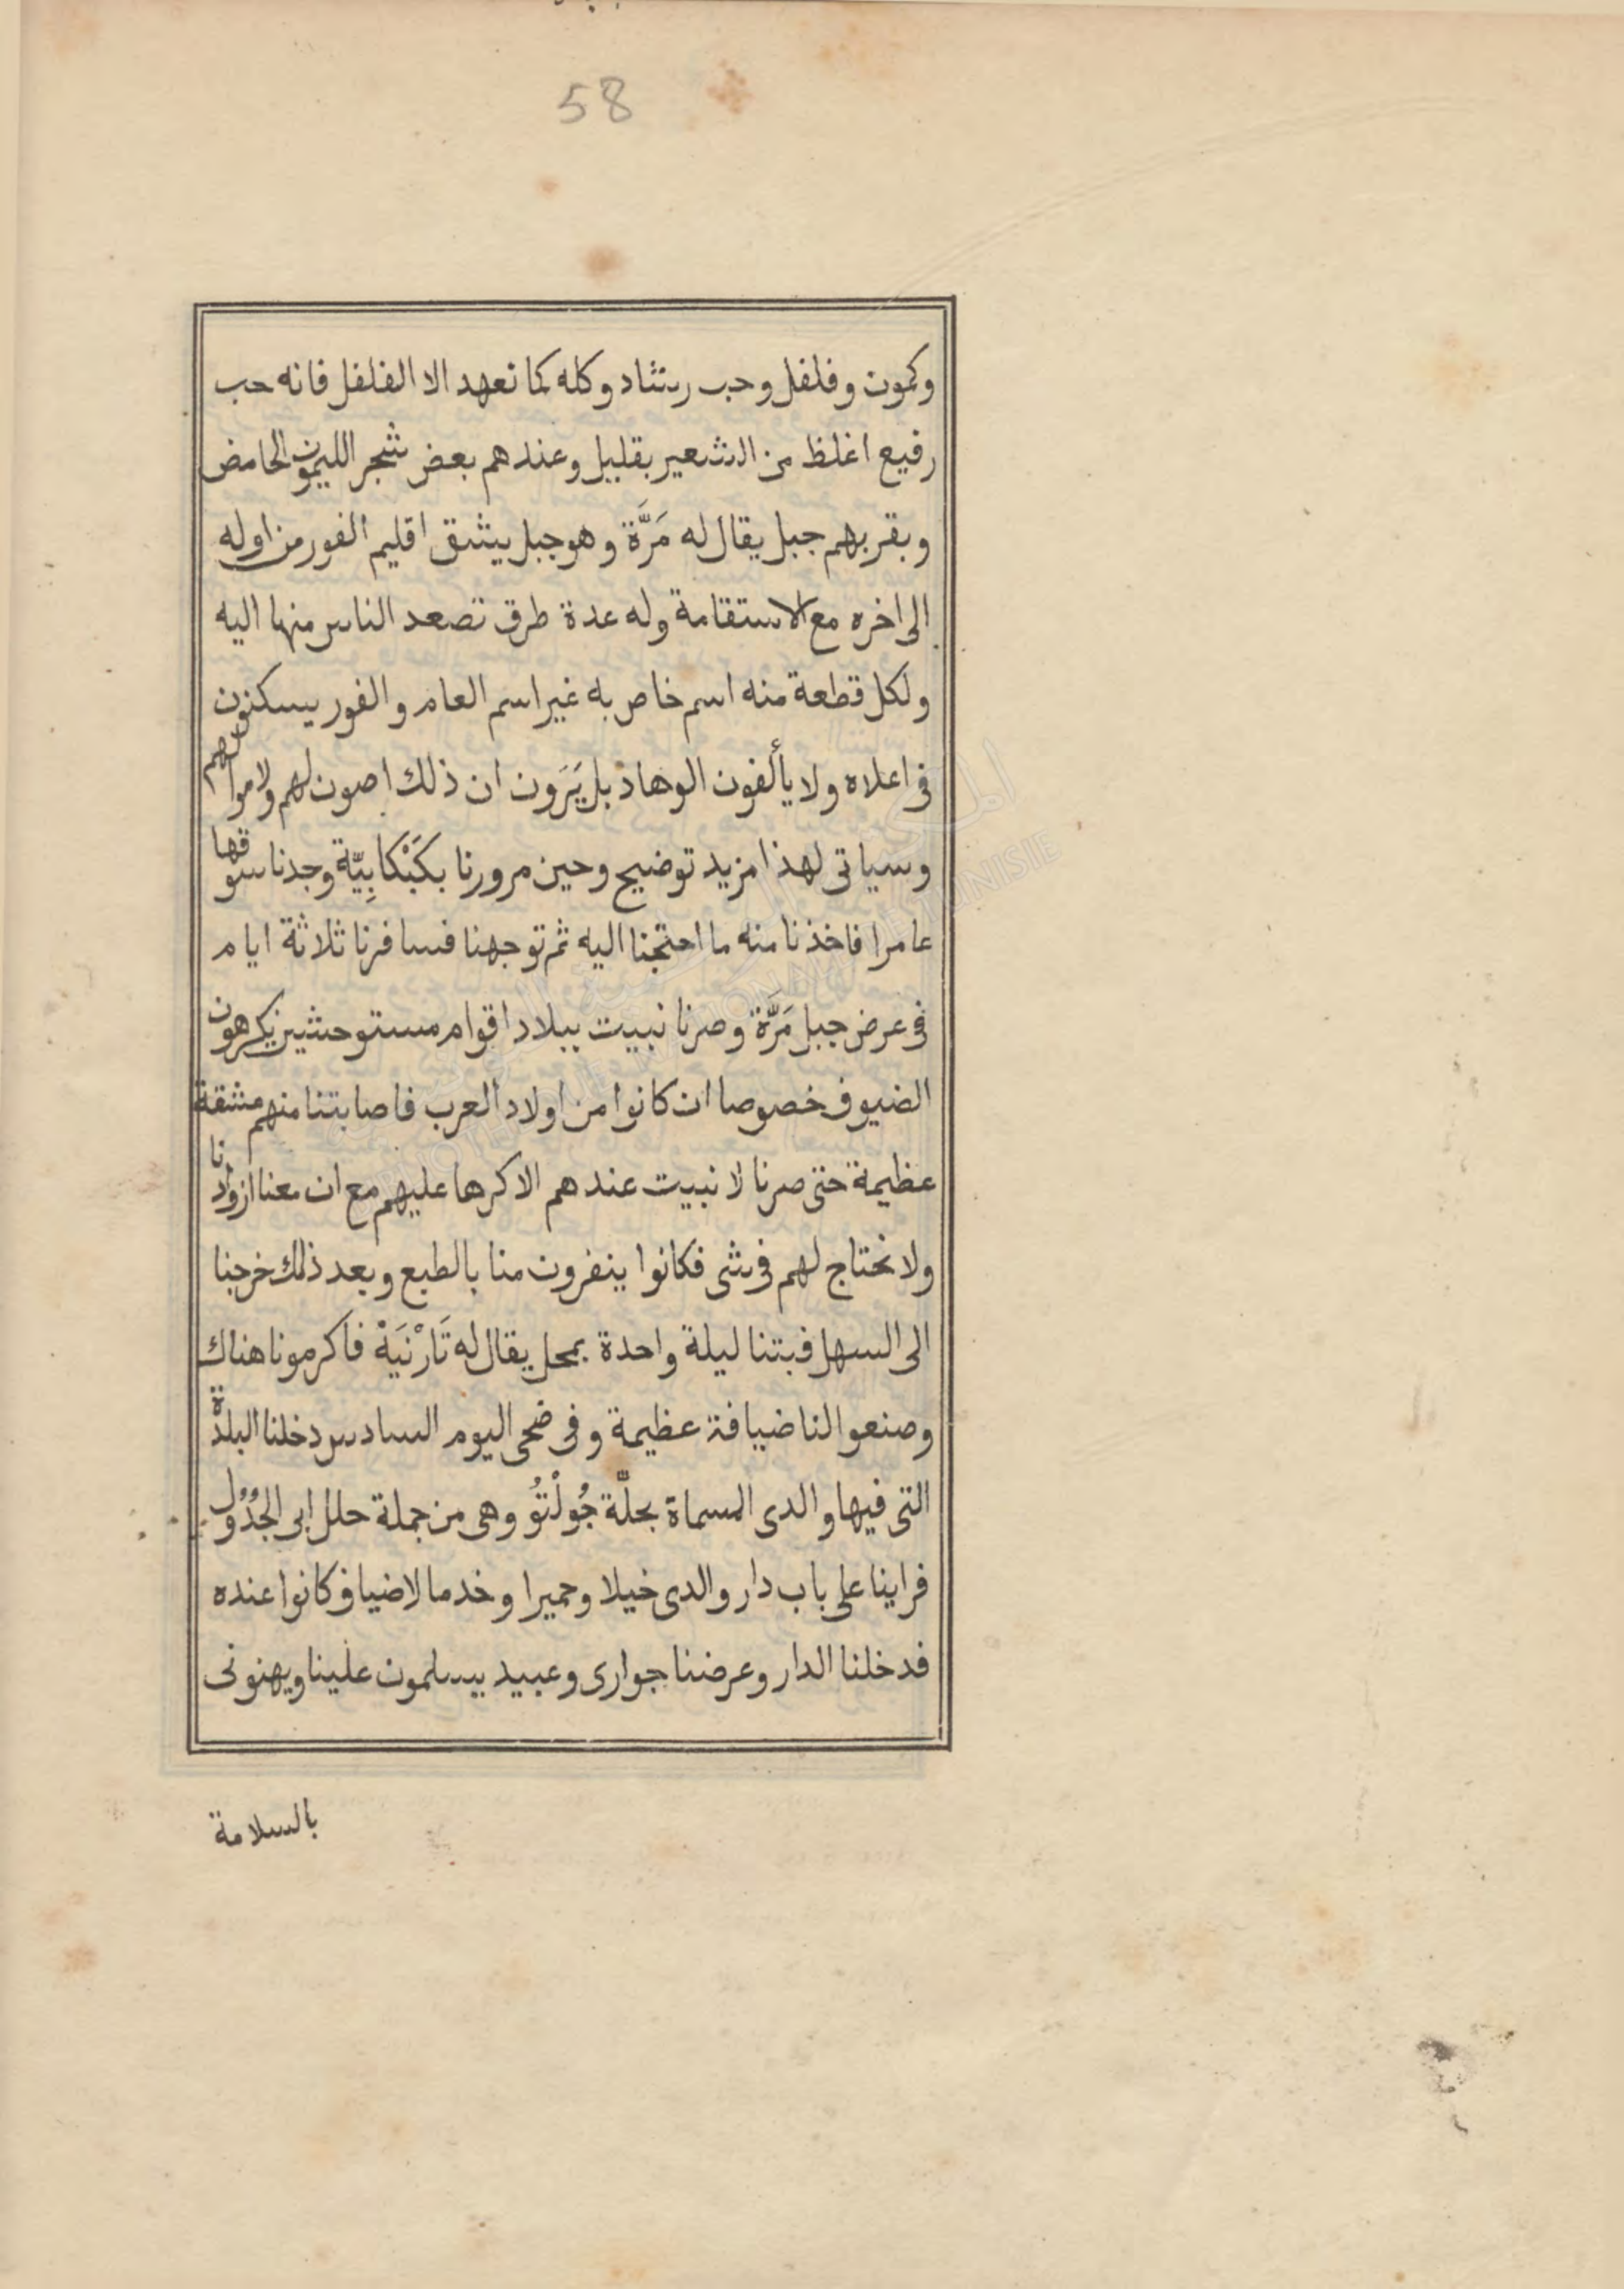 58
وكمون وفلفل وحب رشاد وكله كما نعهد الا الفلفل فانه حب
رفيع اغلظ من الشعير بقليل وعندهم بعض شجر الليمون الحامض
وبقربهم جبل يقال له مَرَّة وهو جبل يشق اقليم الفور من اوله
الى اخره مع الاستقامة وله عدة طرق تصعد الناس منها اليه
ولكل قطعة منه اسم خاص به غير اسم العام والفور يسكنون
فى اعلاه ولا يألفون الوهاد بل يَرَون ان ذلك اصون لهم ولاموالهم
وسياتى لهذا مزيد توضيح وحين مرورنا بكَبْكابِيّة وجدنا سوقها
عامرا فاخذنا منه ما احتجنا اليه ثم توجهنا فسافرنا ثلاثة ايام
فى عرض جبل مَرَّة وصرنا نبيت ببلاد اقوام مستوحشين يكرهون
الضيوف خصوصا ان كانوا من اولاد العرب فاصابتنا منهم مشقة
عظيمة حتى صرنا لا نبيت عندهم الا كرها عليهم مع ان معنا ازوادنا
ولا نحتاج لهم فى شى فكانوا ينفرون منا بالطبع وبعد ذلك خرجنا
الى السهل فبتنا ليلة واحدة بمحل يقال له تَارْنَيَهْ فاكرمونا هناك
وصنعوا لنا ضيافة عظيمة وفى ضحى اليوم السادس دخلنا البلدة
التى فيها والدى المسماة بحلّة جُولْتُو وهى من جملة حلل ابى الجُدُول
فراينا على باب دار والدى خيلا وحميرا وخدما لاضياف كانوا عنده
فدخلنا الدار وعرضنا جوارى وعبيد يسلمون علينا ويهنونى
بالسلامة